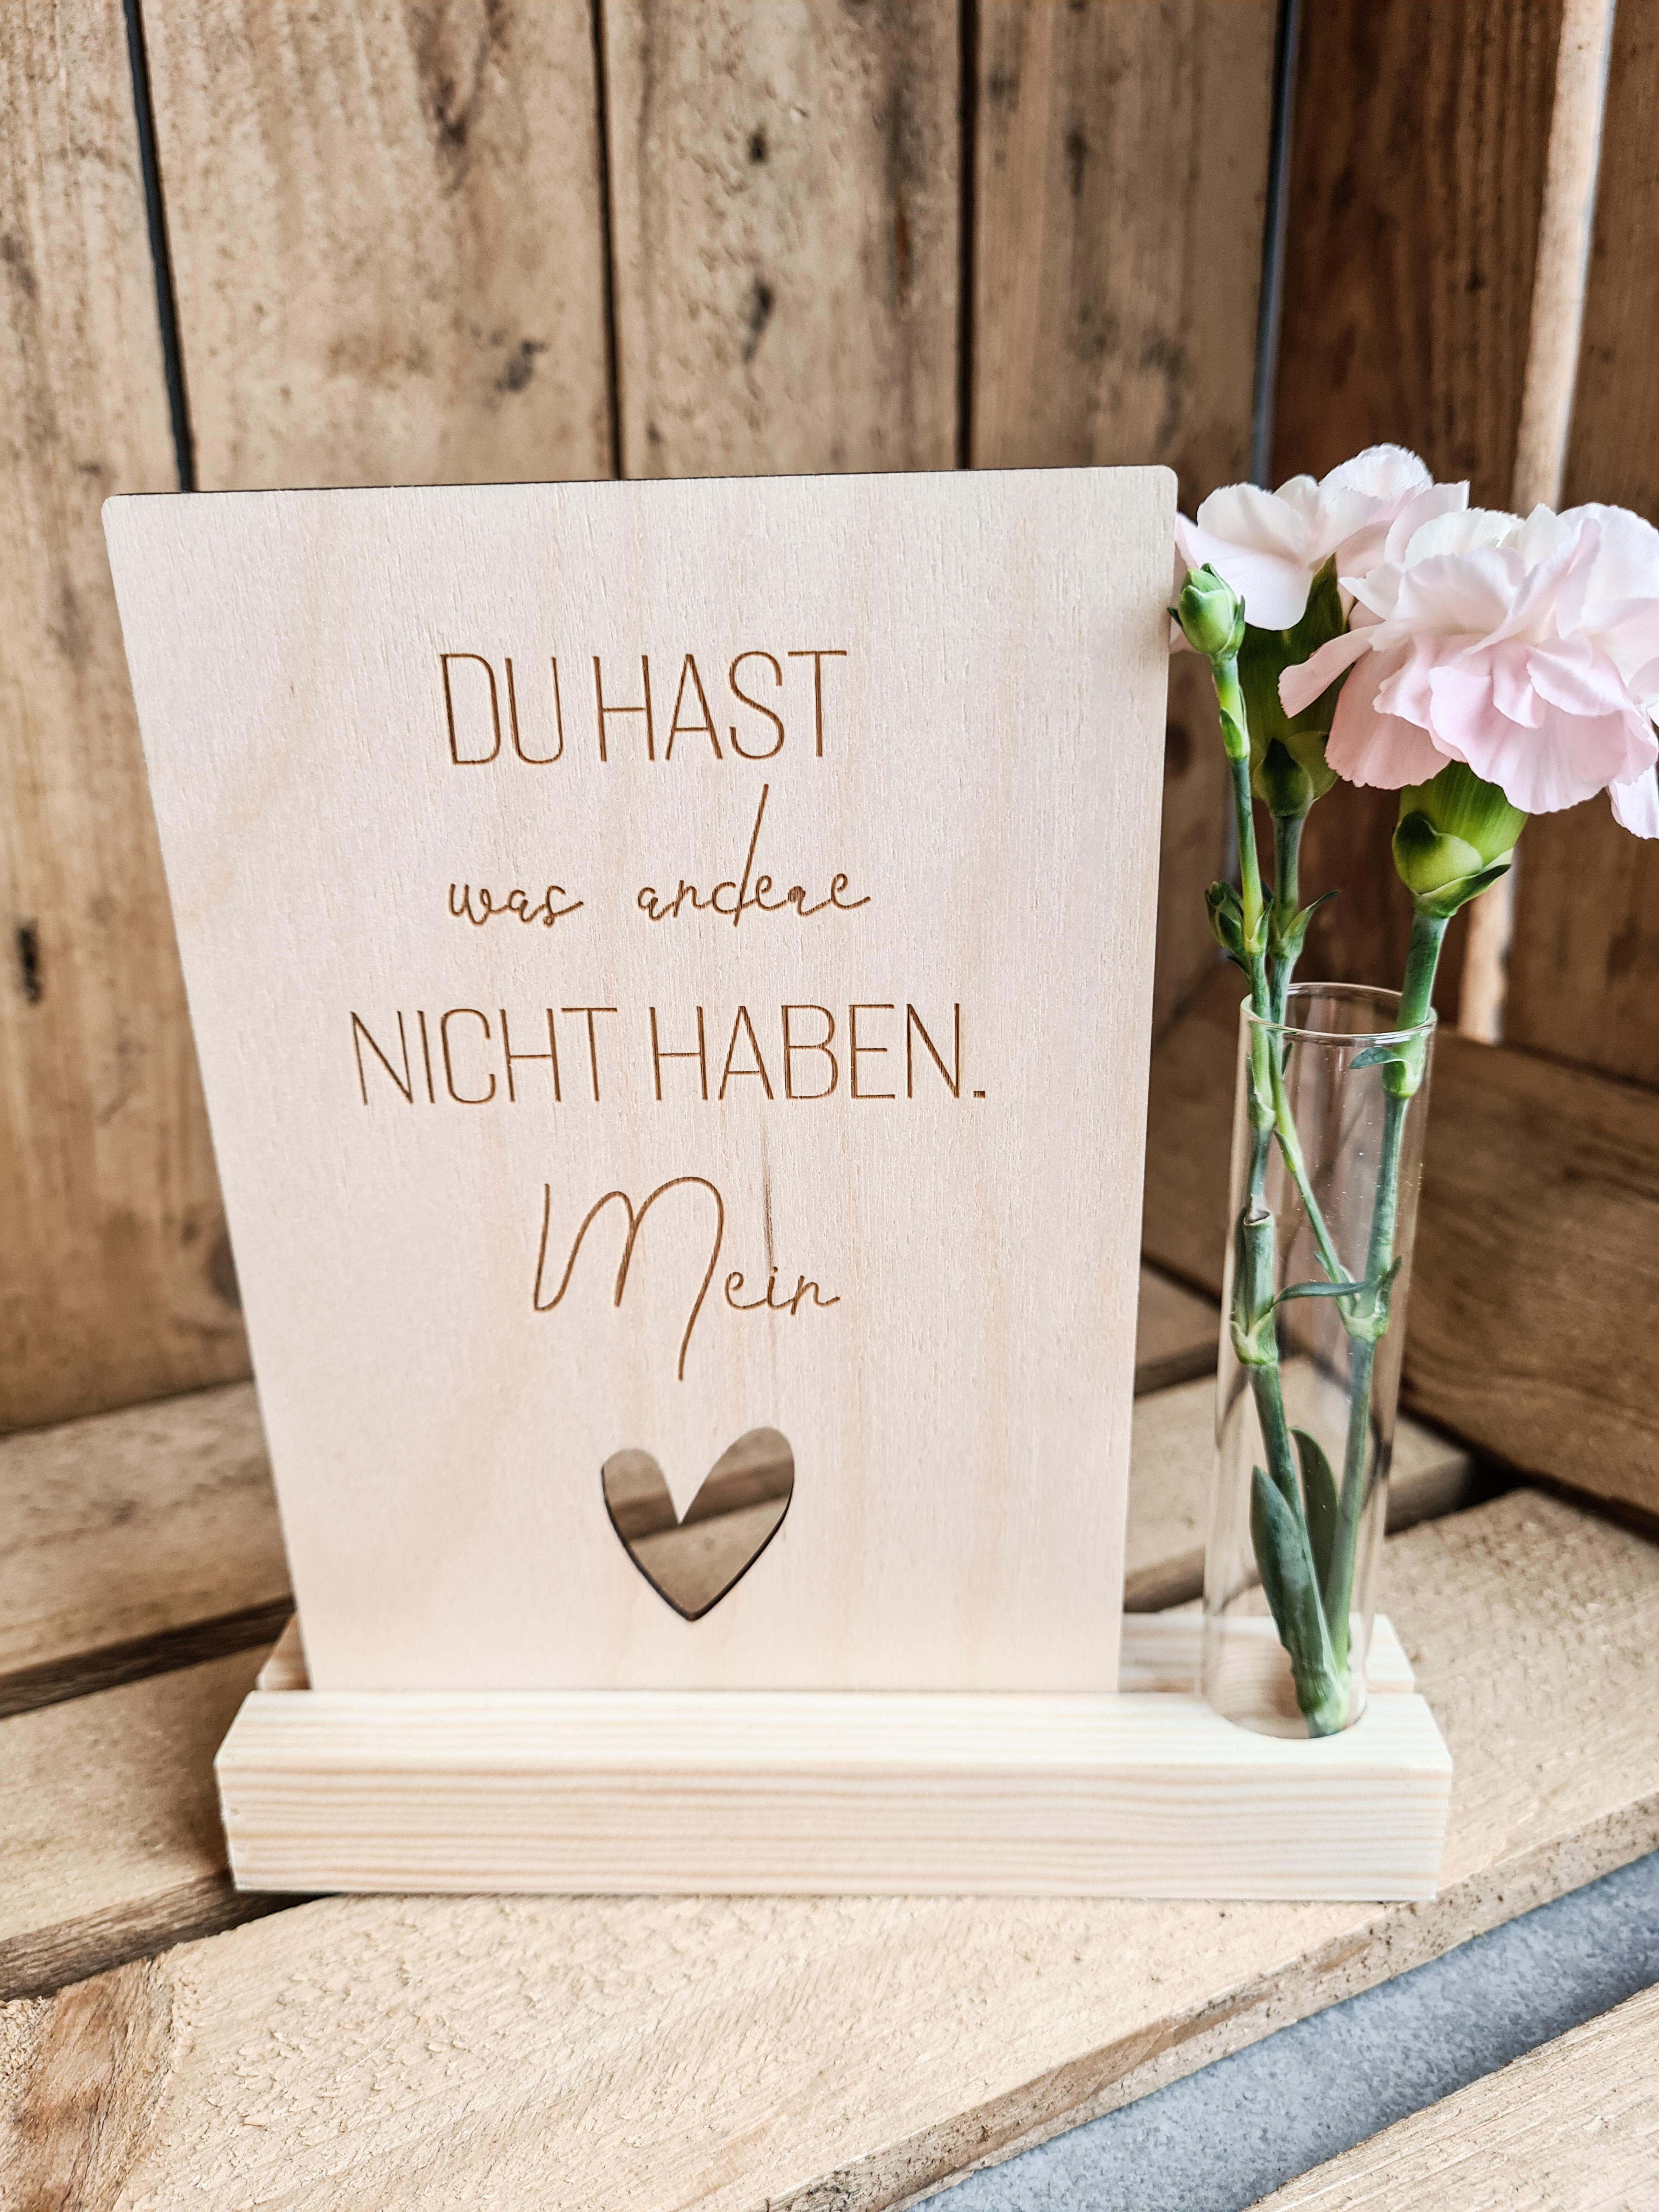 DU HAST
was andere
NICHT HABEN.
Mein